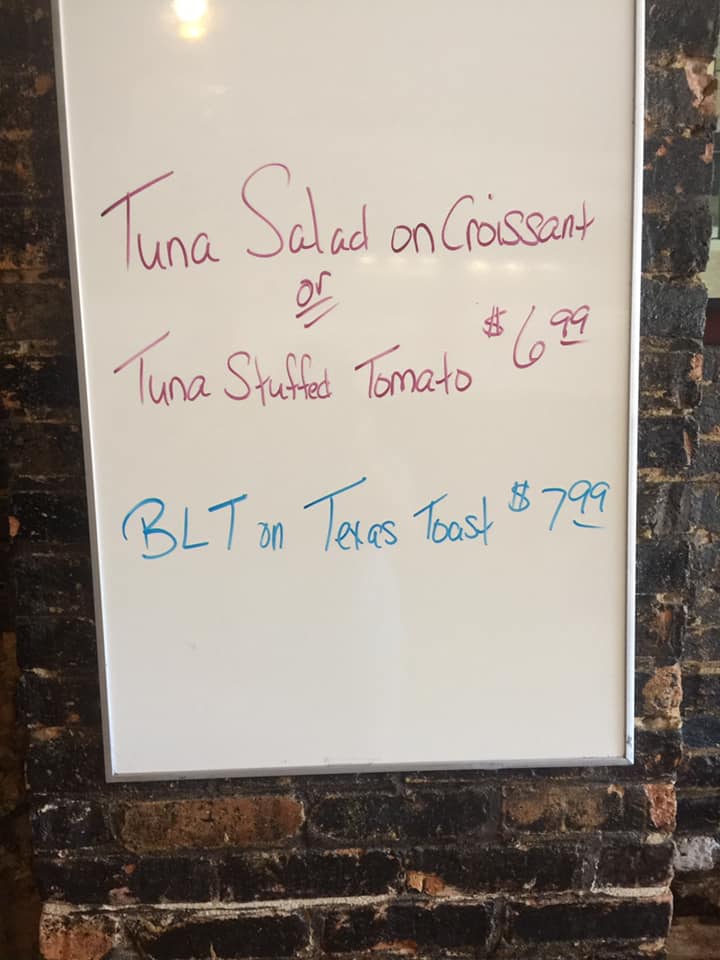 Tuna Salad on Croissant
or
Tuna Stuffed Tomato $6.99
BLT on Texas Toast $7.99